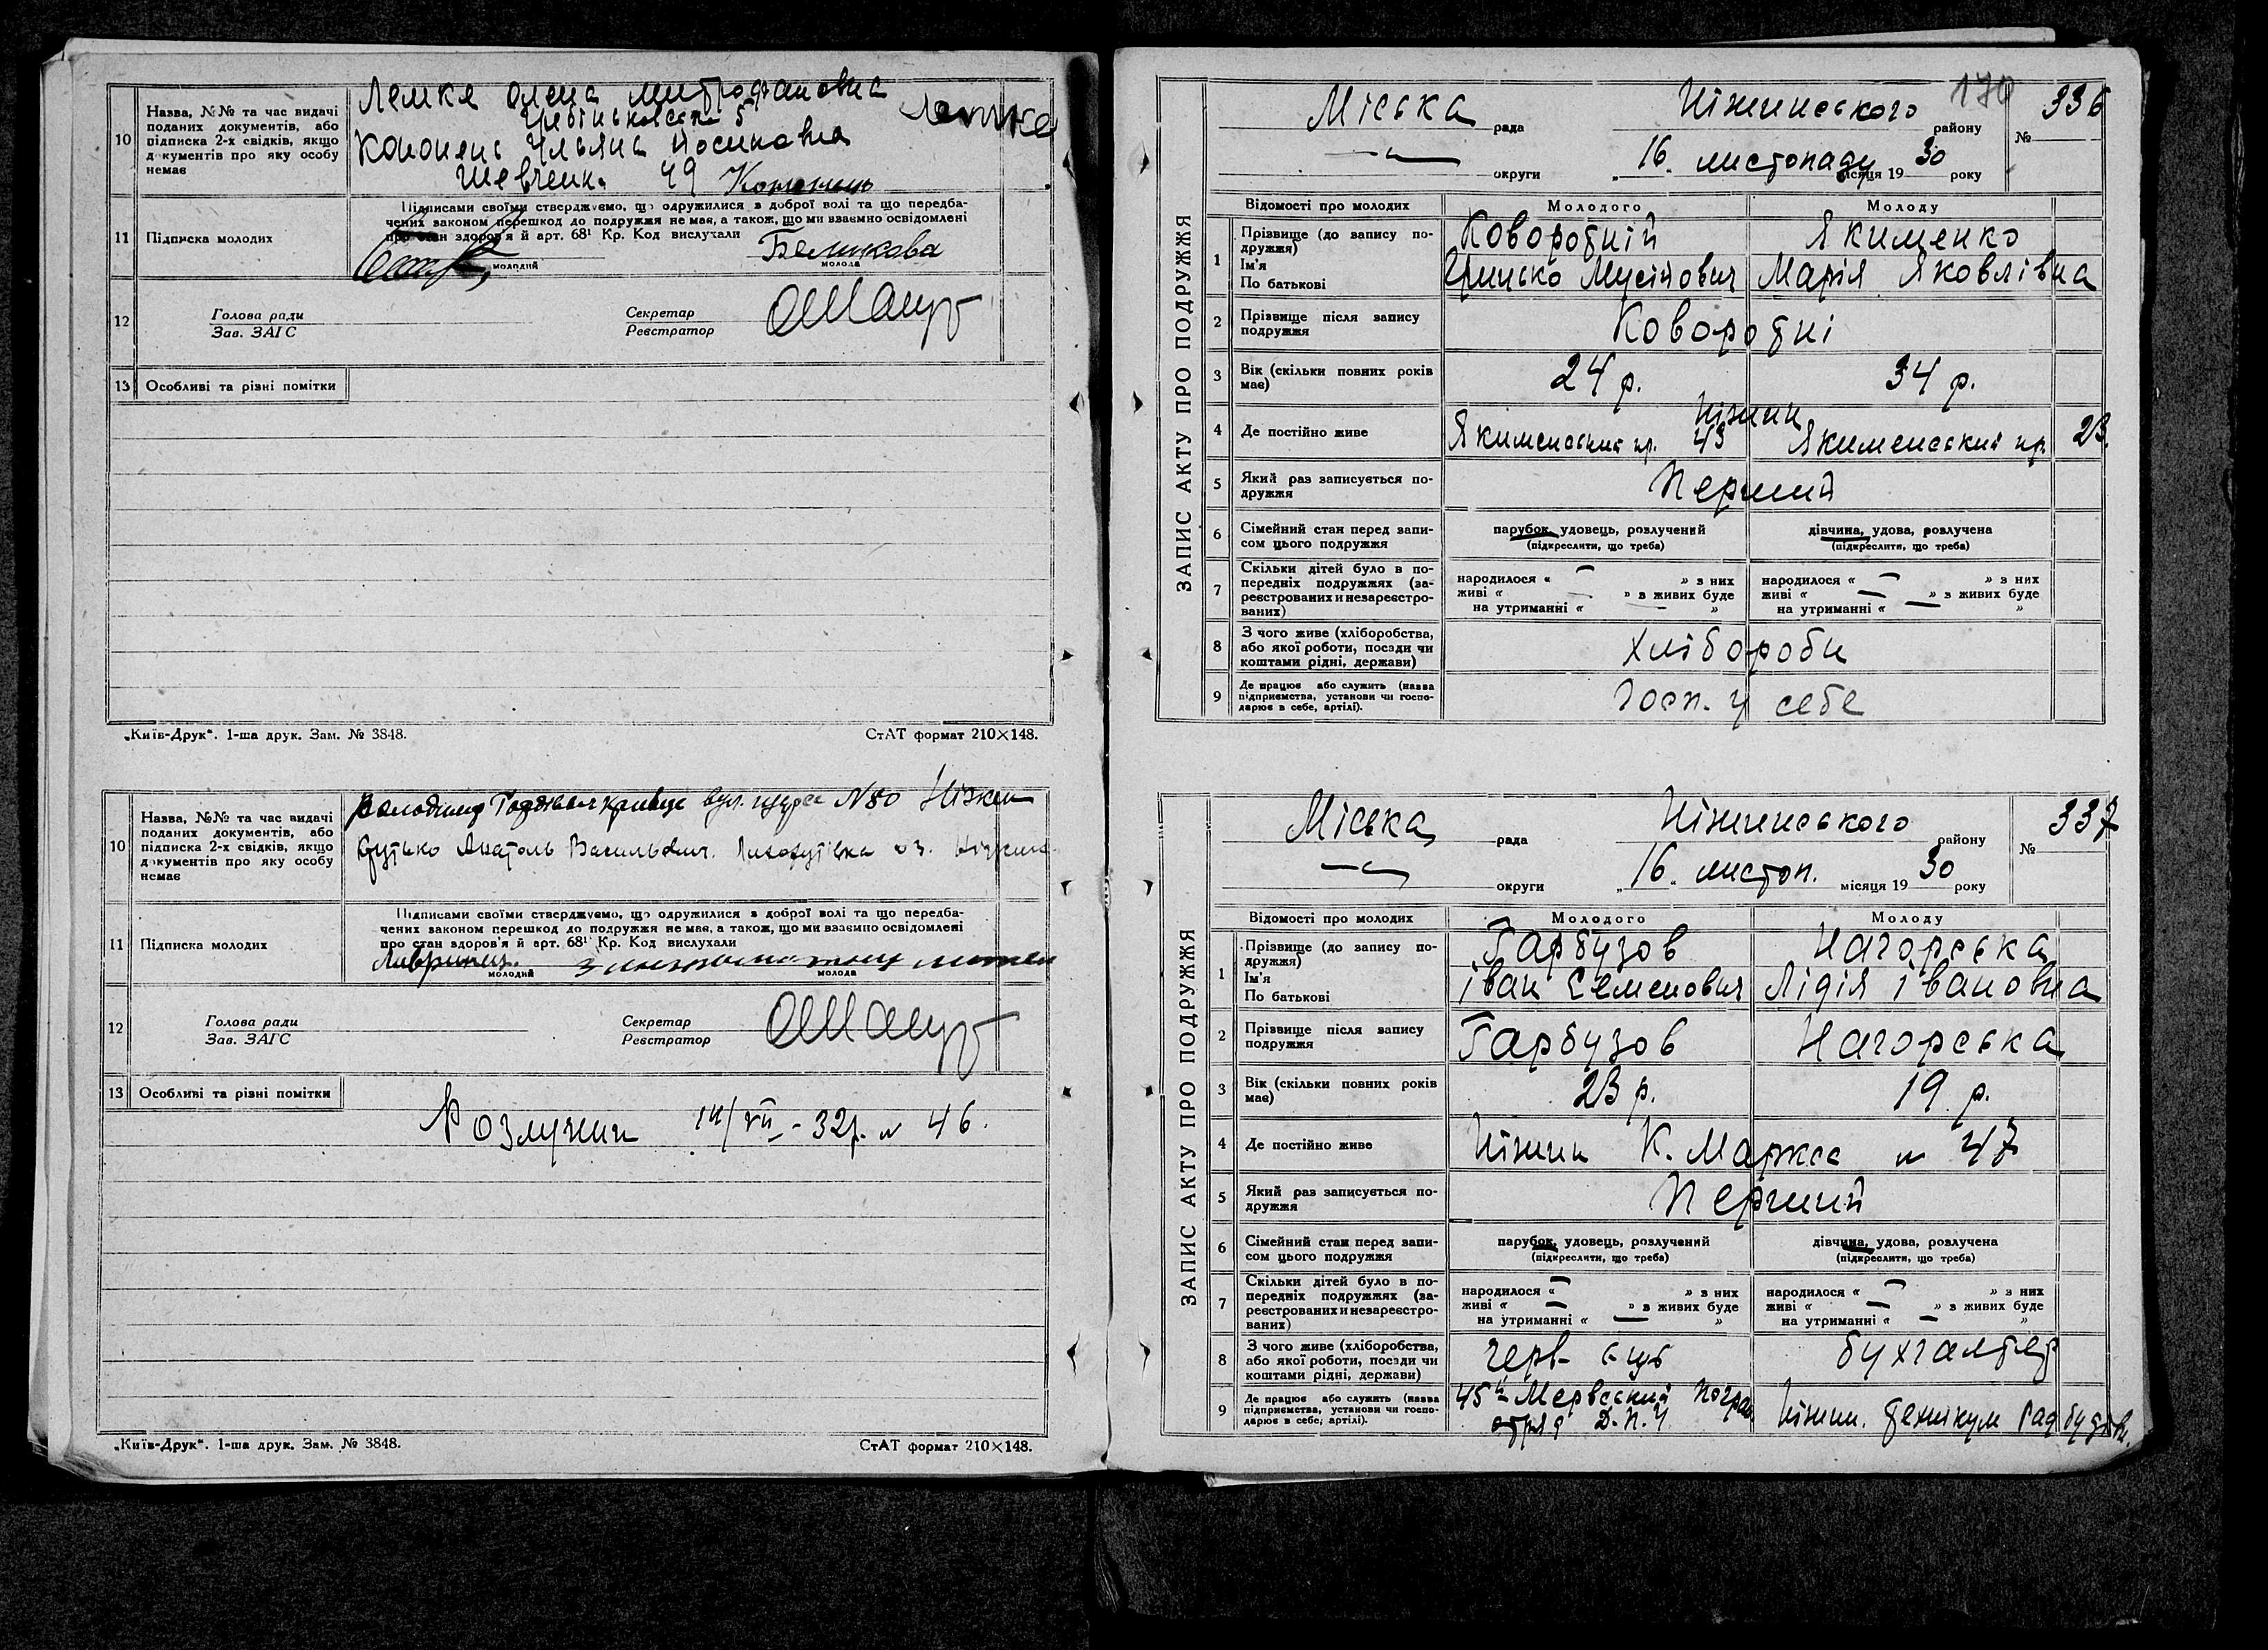 10
Назва, №№ та час видачі
поданих документів, або
підписка 2-х свідків, якщо
документів про яку особу
немає
Лемке Олена Митрофановна
5 Лемке
Кононець Уляна Йосиповна
Шевченк. 49 Кононець
11
Підписка молодих
Підписами своїми стверджуємо, що одружилися з доброї волі та що передба-
чених законом перешкод до подружжя не має, а також, що ми взаємно освідомлені
про стан здоров'я й арт. 68¹ Кр. Код вислухали
Беликова
молодий молода
12
Голова ради
Зав. ЗАГС
Секретар
Реєстратор
13 Особливі та різні помітки
„Київ-Друк“. 1-ша друк. Зам. № 3848. СтАТ формат 210×148.
10
Назва, №№ та час видачі
поданих документів, або
підписка 2-х свідків, якщо
документів про яку особу
немає
Володимир вул. N80 Ніжин
Анатоль Васильович
11
Підписка молодих
Підписами своїми стверджуємо, що одружилися з доброї волі та що передба-
чених законом перешкод до подружжя не має, а також, що ми взаємно освідомлені
про стан здоров'я й арт. 68¹ Кр. Код вислухали
молодий молода
12
Голова ради
Зав. ЗАГС
Секретар
Реєстратор
13 Особливі та різні помітки
Розлучен VII - 32р. № 46.
„Київ-Друк“. 1-ша друк. Зам. № 3848. СтАТ формат 210×148.
170
ЗАПИС АКТУ ПРО ПОДРУЖЖЯ
Міська рада Ніжинського району № 336
округи „16„ листопаду місяця 1930 року
Відомості про молодих Молодого Молоду
1
Прізвище (до запису по-
дружжя)
Ім'я
По батькові
Коворотній Якименко
Грицько Мусійович Марія Яковлівна
2
Прізвище після запису
подружжя
Коворотні
3
Вік (скільки повних років
має)
24 р. 34 р.
4 Де постійно живе
Ніжин
Якименський пр. 43 Якименський пр. 23.
5
Який раз записується по-
дружжя
Перший
6
Сімейний стан перед запи-
сом цього подружжя
парубок, удовець, розлучений дівчина, удова, розлучена
(підкреслити, що треба) (підкреслити, що треба)
7
Скільки дітей було в по-
передніх подружжях (за-
реєстрованих и незареєстро-
ваних)
народилося « — » з них народилося « — » з них
живі « — » в живих буде живі « — » в живих буде
на утриманні « — » на утриманні « — »
8
З чого живе (хліборобства,
або якої роботи, посади чи
коштами рідні, держави)
хлібороби
9
Де працює або служить (назва
підприємства, установи чи госпо-
дарює в себе, артілі).
Госп. у себе
ЗАПИС АКТУ ПРО ПОДРУЖЖЯ
Міська рада Ніжинського району № 337
округи „16„ листоп. місяця 1930 року
Відомості про молодих Молодого Молоду
1
Прізвище (до запису по-
дружжя)
Ім'я
По батькові
Гарбузов Нагорська
Іван Семенович Лідія Івановна
2
Прізвище після запису
подружжя
Гарбузов Нагорська
3
Вік (скільки повних років
має)
23 р. 19 р.
4 Де постійно живе
Ніжин К. Маркса № 47
5
Який раз записується по-
дружжя
Перший
6
Сімейний стан перед запи-
сом цього подружжя
парубок, удовець, розлучений дівчина, удова, розлучена
(підкреслити, що треба) (підкреслити, що треба)
7
Скільки дітей було в по-
передніх подружжях (за-
реєстрованих и незареєстро-
ваних)
народилося « — » з них народилося « — » з них
живі « — » в живих буде живі « — » в живих буде
на утриманні « — » на утриманні « — »
8
З чого живе (хліборобства,
або якої роботи, посади чи
коштами рідні, держави)
черв- бухгалтер
9
Де працює або служить (назва
підприємства, установи чи госпо-
дарює в себе, артілі).
45й Мервський Погран
отряд Д.П.У. Ніжин. технікум Рад будівн.